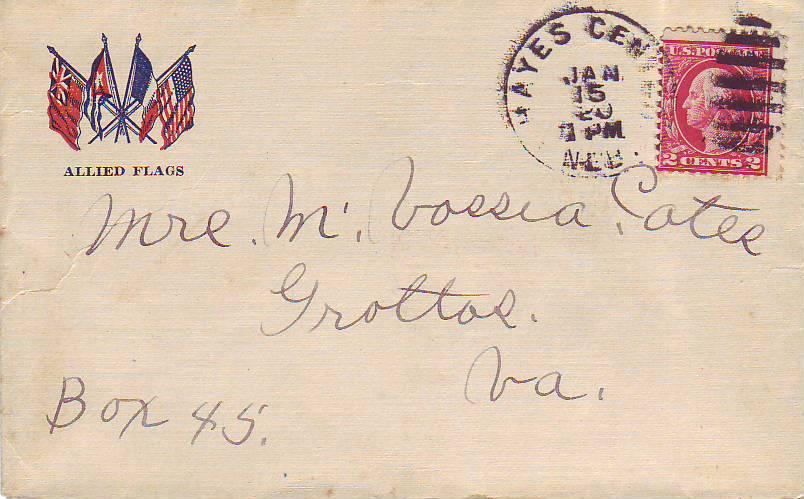 ALLIED FLAGS
HAYES CEN
JAN
15
20
1 PM
NEB.
U.S. POSTAGE
2 CENTS 2
Mrs. M. Vossia. Cates
Grottos.
Va.
Box 45.